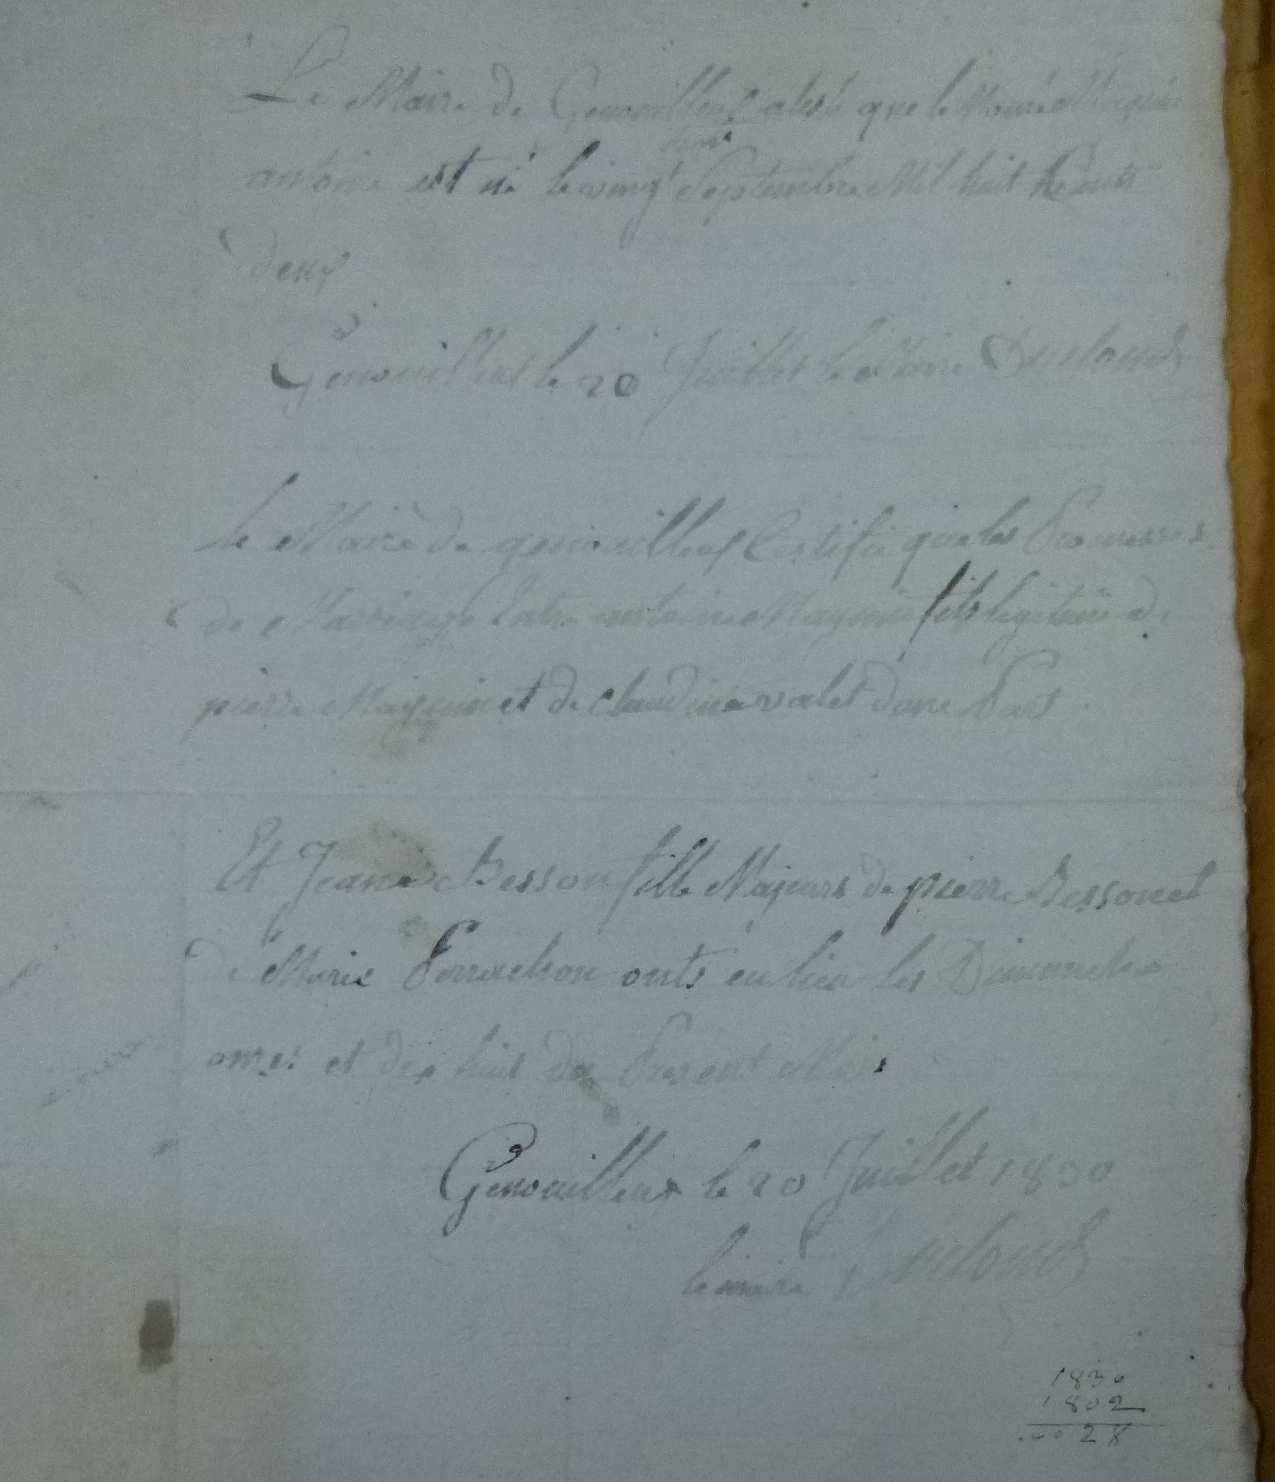 Le Maire de Genouilleux atesté que le Nomé Maguin
antoine est né le vingt Septembre Mil huit Cents
deux
Genouilleux le 20 Juillet le Maire
le Maire de genouilleux Certifie que les Promesses
de Marriage Entre antoine Maguin fils legitime de
pierre Maguin et de claudine valet dune Part
Et Jeanne Besson fille Majeurs de pierre Besson et
de Marie Perrachon onts eu lieu les Dimanche
onze et dix huit du Present Mois
Genouilleux le 20 Juillet 1830
le maire
1830
1802
0028